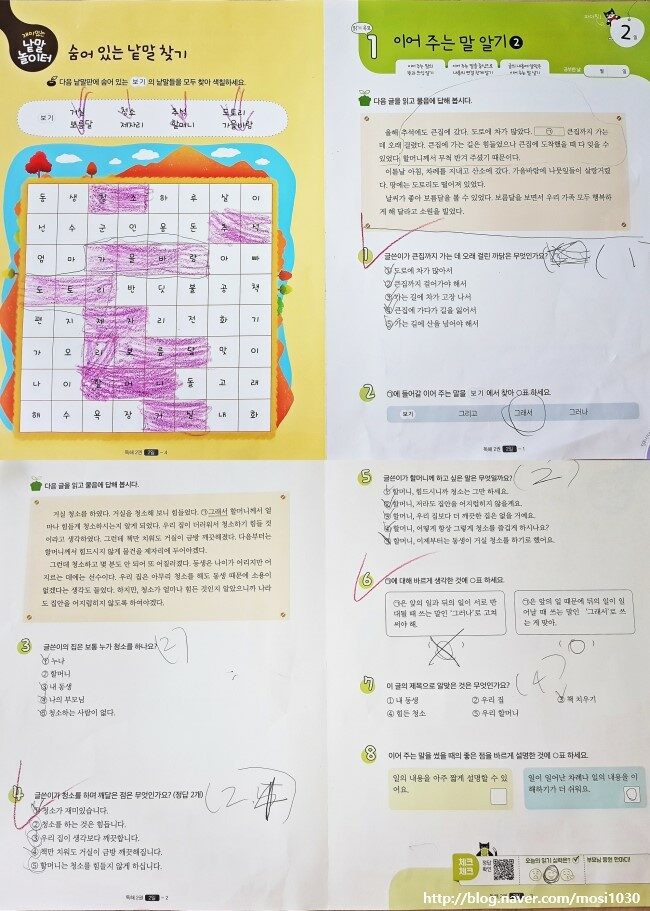 재미있는
낱말
놀이터
숨어 있는 낱말 찾기
다음 낱말판에 숨어 있는 보기 의 낱말들을 모두 찾아 색칠하세요.
보기
거실 청소 추석 도토리
보름달 제자리 할머니 가을바람
동 생 청 소 하 루 살 이
선 수 군 인 몽 돈 추 석
엄 마 가 을 바 람 아 빠
도 토 리 반 딧 불 공 책
편 지 제 자 리 전 화 기
가 오 리 보 름 달 맞 이
나 이 할 머 니 동 고 래
해 수 욕 장 거 실 내 화
독해 2권 2일 - 4
1
이어 주는 말 알기 2
2일
공부한 날 월 일
다음 글을 읽고 물음에 답해 봅시다.
올해 추석에도 큰집에 갔다. 도로에 차가 많았다. ㉠ 큰집까지 가는
데 오래 걸렸다. 큰집에 가는 길은 힘들었으나 큰집에 도착했을 때 다 잊을 수
있었다. 할머니께서 무척 반겨 주셨기 때문이다.
이튿날 아침, 차례를 지내고 산소에 갔다. 가을바람에 나뭇잎들이 살랑거렸
다. 땅에는 도토리도 떨어져 있었다.
날씨가 좋아 보름달을 볼 수 있었다. 보름달을 보면서 우리 가족 모두 행복하
게 해 달라고 소원을 빌었다.
1 글쓴이가 큰집까지 가는 데 오래 걸린 까닭은 무엇인가요? (1)
① 도로에 차가 많아서
② 큰집까지 걸어가야 해서
③ 가는 길에 차가 고장 나서
④ 큰집에 가다가 길을 잃어서
⑤ 가는 길에 산을 넘어야 해서
2 ㉠에 들어갈 이어 주는 말을 보기 에서 찾아 ○표 하세요.
보기 그리고 그래서 그러나
독해 2권 2일 - 1
다음 글을 읽고 물음에 답해 봅시다.
거실 청소를 하였다. 거실을 청소해 보니 힘들었다. ㉠그래서 할머니께서 얼
마나 힘들게 청소하시는지 알게 되었다. 우리 집이 더러워서 청소하기 힘들 것
이라고 생각하였다. 그런데 책만 치워도 거실이 금방 깨끗해졌다. 다음부터는
할머니께서 힘드시지 않게 물건을 제자리에 두어야겠다.
그런데 청소하고 몇 분도 안 되어 또 어질러졌다. 동생은 나이가 어리지만 어
지르는 데에는 선수이다. 우리 집은 아무리 청소를 해도 동생 때문에 소용이
없겠다는 생각도 들었다. 하지만, 청소가 얼마나 힘든 것인지 알았으니까 나라
도 집안을 어지럽히지 않도록 하여야겠다.
3 글쓴이의 집은 보통 누가 청소를 하나요? (2)
① 누나
② 할머니
③ 내 동생
④ 나의 부모님
⑤ 청소하는 사람이 없다.
4 글쓴이가 청소를 하며 깨달은 점은 무엇인가요? (정답 2개)
① 청소가 재미있습니다.
② 청소를 하는 것은 힘듭니다.
③ 우리 집이 생각보다 깨끗합니다.
④ 책만 치워도 거실이 금방 깨끗해집니다.
⑤ 할머니는 청소를 힘들지 않게 하십니다.
독해 2권 2일 - 2
5 글쓴이가 할머니께 하고 싶은 말은 무엇일까요? (2)
① 할머니, 힘드시니까 청소는 그만 하세요.
② 할머니, 저라도 집안을 어지럽히지 않을게요.
③ 할머니, 우리 집보다 더 깨끗한 집은 없을 거예요.
④ 할머니, 어떻게 항상 그렇게 청소를 즐겁게 하시나요?
⑤ 할머니, 이제부터는 동생이 거실 청소를 하기로 했어요.
6 ㉠에 대해 바르게 생각한 것에 ○표 하세요.
㉠은 앞의 일과 뒤의 일이 서로 반
대될 때 쓰는 말인 '그러나'로 고쳐
써야 해.
㉠은 앞의 일 때문에 뒤의 일이 일
어날 때 쓰는 말인 '그래서'로 쓰
는 게 맞아.
7 이 글의 제목으로 알맞은 것은 무엇인가요? (4)
① 내 동생 ② 우리 집 ③ 책 치우기
④ 힘든 청소 ⑤ 우리 할머니
8 이어 주는 말을 썼을 때의 좋은 점을 바르게 설명한 것에 ○표 하세요.
일의 내용을 아주 짧게 설명할 수 있
어요.
일이 일어난 차례나 일의 내용을 이
해하기가 더 쉬워요.
체크
체크
정답
확인
오늘의 읽기 실력은?
부모님 응원 한마디!
http://blog.naver.com/mosi1030